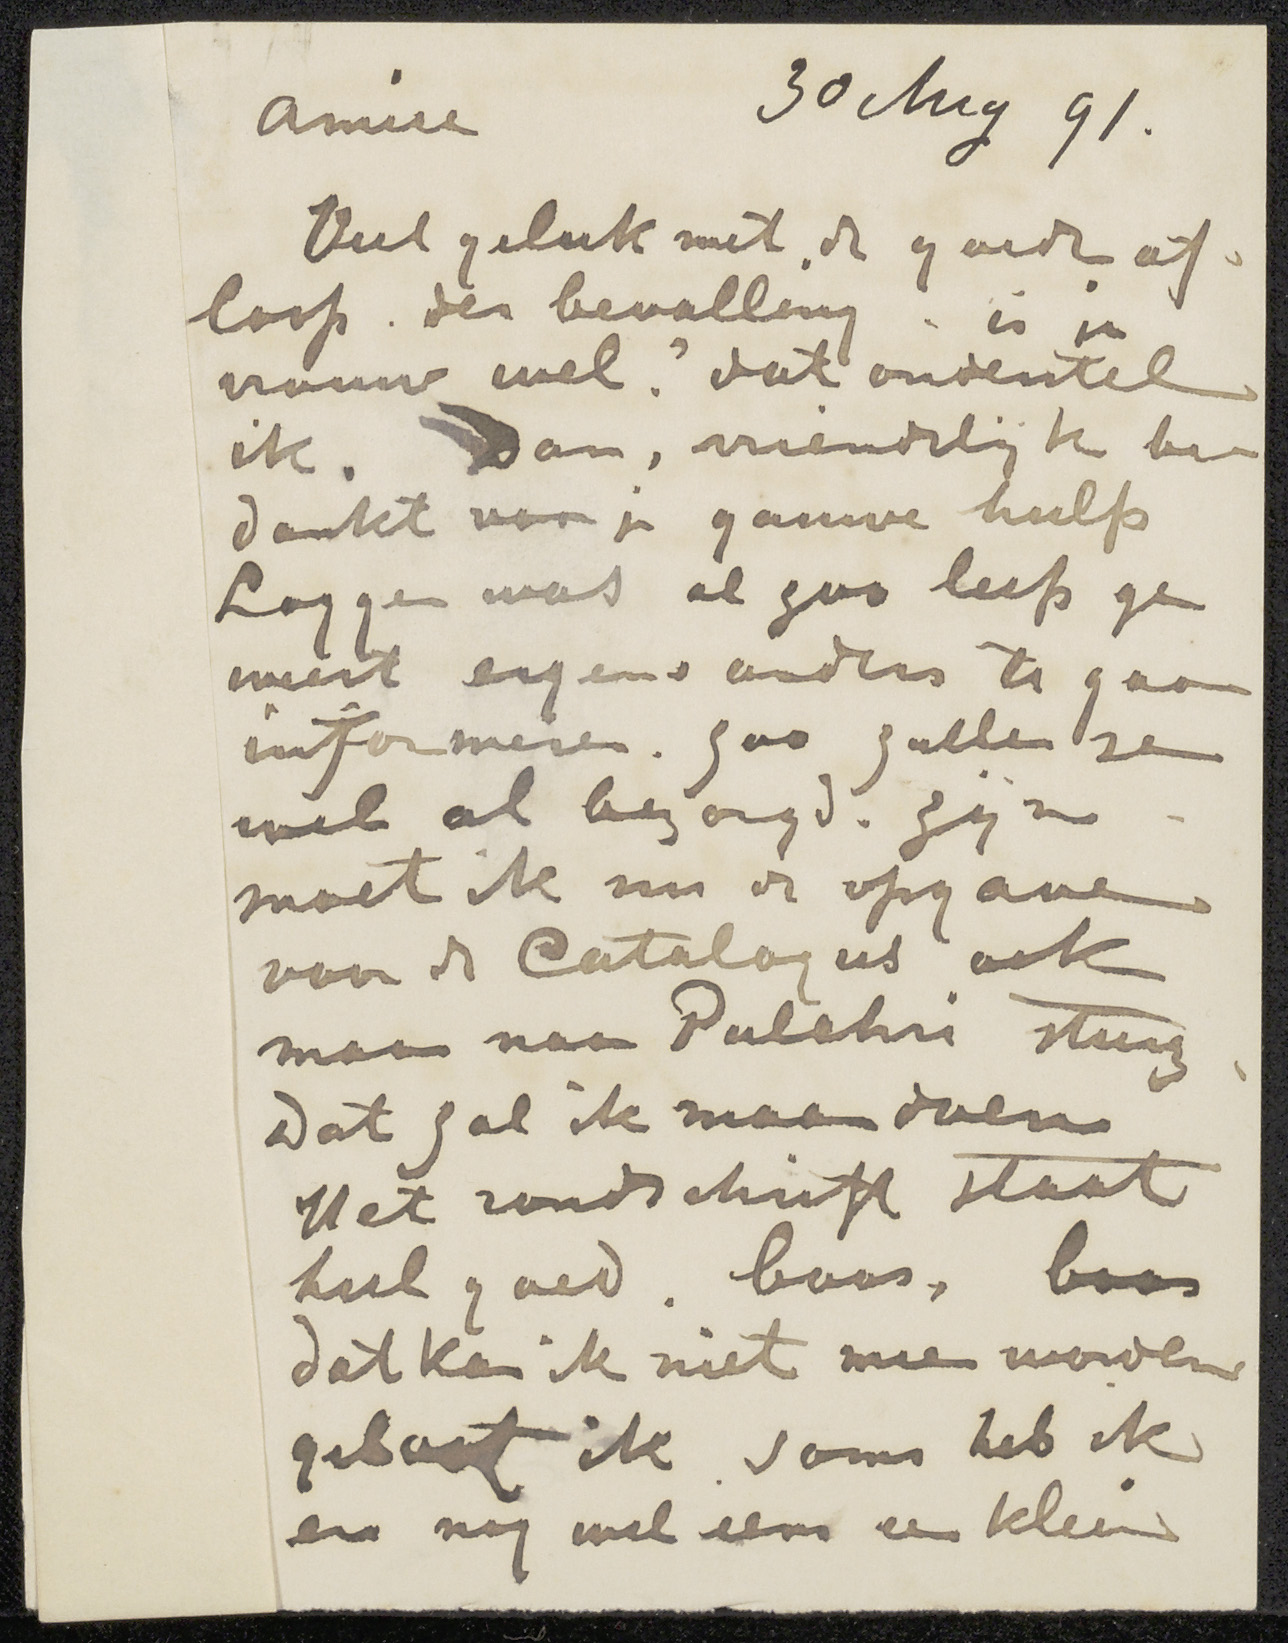 Amice 30 Aug 91.
Veel geluk met de goede af-
loop der bevalling. is je
vrouw wel? dat onderstel
ik. Dan, vriendelijk be
dankt voor je gauwe hulp
Logger was al zoo leep ge
weest ergens anders te gaan
informeren. Zoo zulle ze
wel al bezorgd. zijn -
moet ik nu de opgave
voor de Catalogus ook
maar naar Pulchri sturen.
Dat zal ik maar doen
Het rondschrift staat
heel goed. boos, boos
dat kan ik niet meer worden
geloof ik. soms heb ik
er nog wel eens een klein